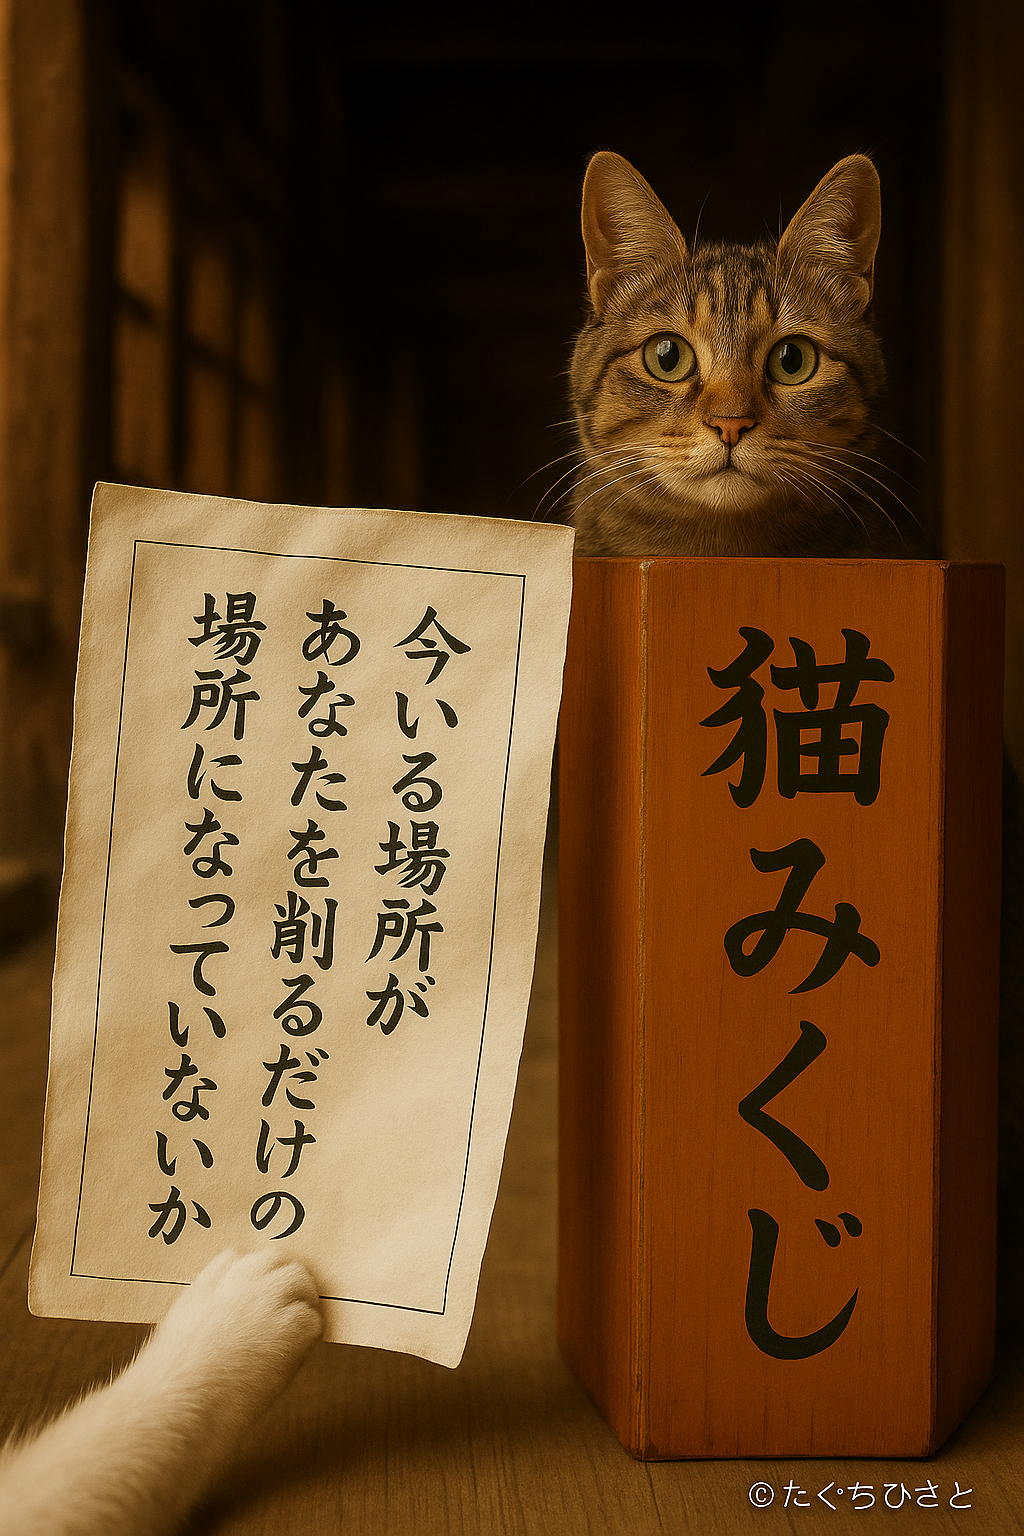 今いる場所が
あなたを削るだけの
場所になっていないか
猫みくじ
©たぐちひさと